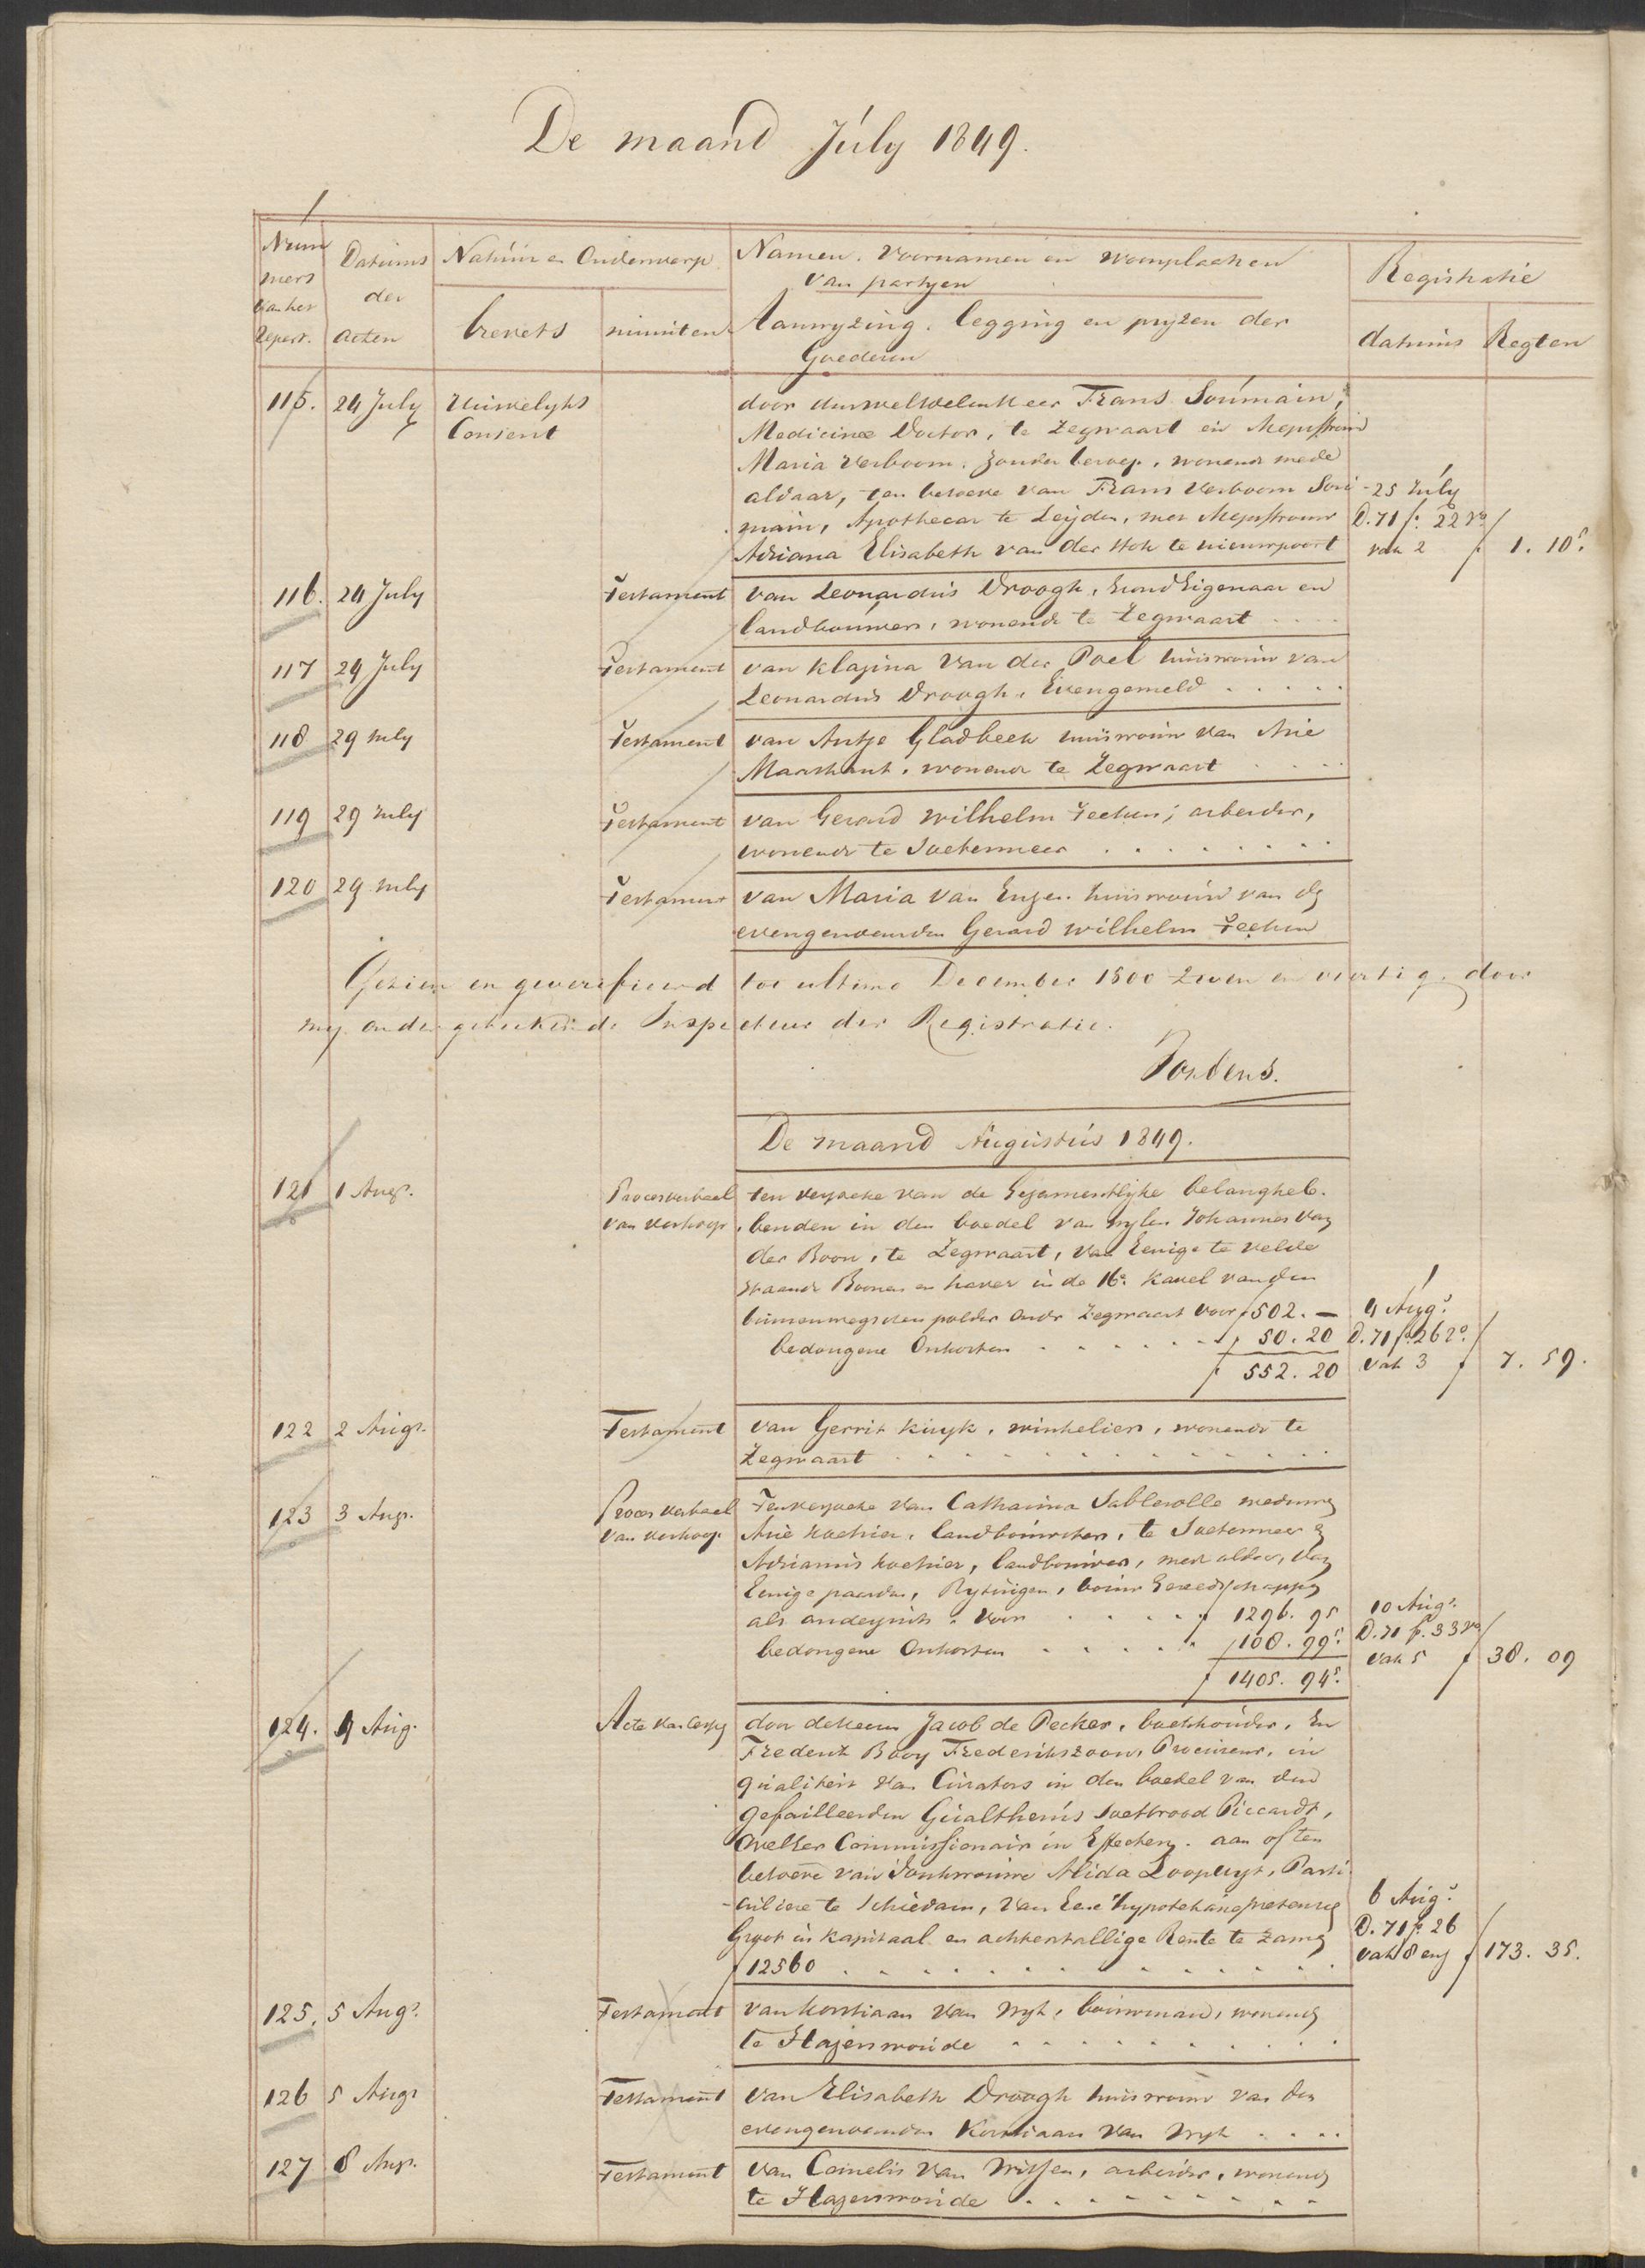 De maand July 1849.
Nummers van het Repert.
Datums der acten
Natuur en Onderwerp
brevets
minuiten
Namen, Voornamen en Woonplaatsen
van partyen
Aanwyzing, legging en pryzen der
Goederen
Registratie
datums
Regten
115. 24 July Huwelyks door den Weledelen Heer Frans Soumain,
Consent Medicinae Doctor, te Zegwaart en Mejuffrouw
Maria Verboom, zonder beroep, wonende mede
aldaar, ten behoeve van Frans Verboom Sou- 25 July
main, Apothecar te Leijden, met Mejuffrouw D. 71 f. 22 vo
Adriana Elisabeth van der Hok te nieuwpoort vak 2 f 1. 10⁵.
116. 24 July Testament van Leonardus Droogh, Grond Eigenaar en
landbouwer, wonende te Zegwaart
117 24 July Testament van Klazina Van der Poel huisvrouw van
Leonardus Droogh, Evengemeld
118 29 July Testament van Antje Gladbeek huisvrouw van Arie
Marchant, wonende te Zegwaart
119 29 July Testament van Gerard Wilhelm Feeken, arbeider,
wonende te Soetermeer
120 29 July Testament van Maria van Enzen huisvrouw van de
evengenoemden Gerard Wilhelm Feeken
Gezien en geverifieerd tot ultimo December 1800 zeven en veertig door
my ondergeteekende Inspecteur der Registratie.
De maand Augustus 1849.
121 1 Aug. Procesverbaal ten verzoeke van de Gezamentlijke belangheb-
van verkoop benden in den boedel van wylen Johannes van
der Boon, te Zegwaart, van Eenige te velde
staande Boonen en haver in de 16e. Kavel van den
binnenwegschen polder onder Zegwaart voor f 502. — 4 Aug.
bedongene Onkosten f 50. 20 D. 71 f. 26 ro.
f 552. 20 vak 3 f 7. 59.
122 2 Aug. Testament van Gerrit Kuyk, winkelier, wonende te
Zegwaart
123 3 Aug. Proces verbaal Ten verzoeke van Catharina Sablerolle weduwe
van verkoop Arie Kochier, landbouwster, te Soetermeer &
Adrianus Kochier, landbouwer, mede aldaar, van
Eenige paarden, Rytuigen, bouw Gereedschappen
als anderzints, voor f 1296. 95 10 Aug.
bedongene Onkosten f 108. 99⁵. D. 71 f. 33 vo
f 1405. 94⁵. vak 5 f 38. 09
124. 4 Aug. Acte van Cessie door de Heeren Jacob de Decker, boekhouder, En
Frederik Booy Frederikszoon, Procureur, in
qualiteit van Curators in den boedel van den
gefailleerden Gualtherus Soetbrood Piccardt,
Makelaar Commissionair in Effecten. aan of ten
behoeve van Jonkvrouwe Alida Loopuyt, Parti-
culiere te Schiedam, van Eene Hypothekaire pretensie 6 Aug.
Groot in kapitaal en achterstallige Rente te zamen D. 71 f. 26
f 12560 vak 8 env f 173. 35.
125. 5 Aug. Testament van Korstiaan van Wyk, bouwman, wonende
te Hazerswoude
126 5 Aug. Testament van Elisabeth Droogh huisvrouw van den
evengenoemden Korstiaan van Wyk
127 8 Aug. Testament van Cornelis van Vrissen, arbeider, wonende
te Hazerswoude